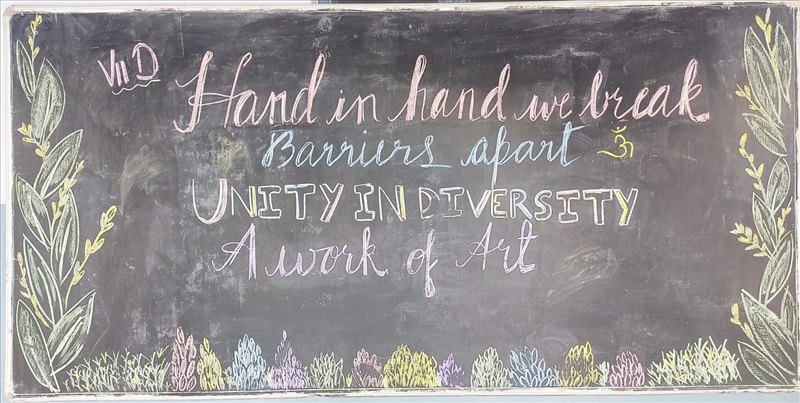 VII D
Hand in hand we break
Barriers apart ॐ
UNITY IN DIVERSITY
A work of Art